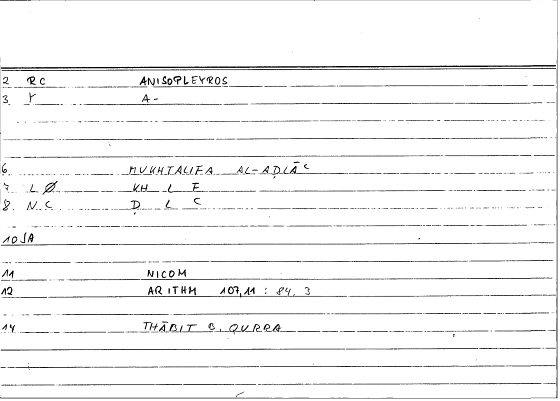 2 RC ANISOPLEYROS
3 Y A-
6 MUKHTALIFA AL-AḌLĀʿ
7 L Ø KH L F
8 N C Ḍ L ʿ
10 JA
11 NICOM
12 ARITHM 107,11 : 84, 3
14 THĀBIT B. QURRA